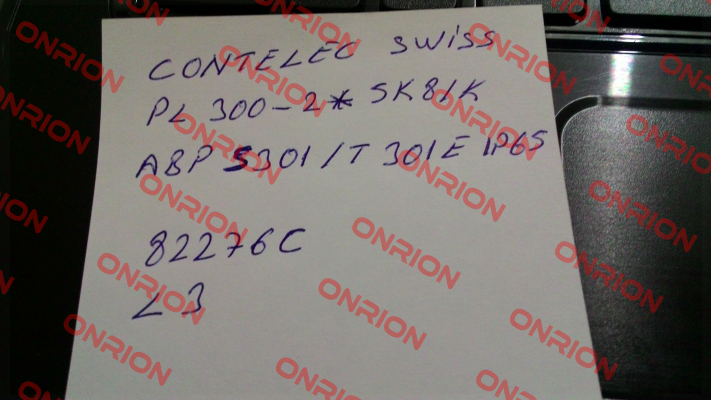 CONTELEC SWISS
PL 300-2* SK81K
ABP S301/T 301E IP65
82276C
L3